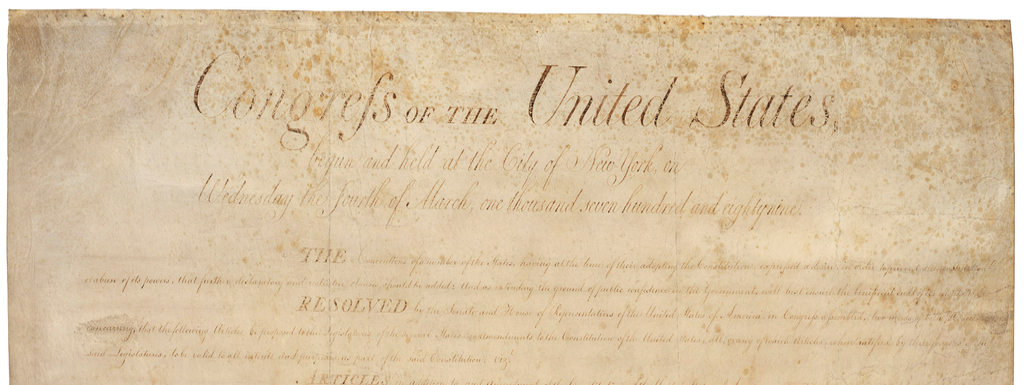 Congreſs OF THE United States,
begun and held at the City of New York, on
Wednesday the fourth of March, one thousand seven hundred and eighty nine.
THE Conventions of a number of the States, having at the time of their adopting the Constitution, expressed a desire, in order to prevent
of its powers, that further declaratory and restrictive clauses should be added: And as extending the ground of public confidence in the Government, will best ensure the beneficent ends of its
RESOLVED by the Senate and House of Representatives of the United States of America, in Congress assembled, two thirds of both Houses
concurring, that the following Articles be proposed to the Legislatures of the several States, as amendments to the Constitution of the United States, all, or any of which Articles, when ratified by three fourths of the
said Legislatures, to be valid to all intents and purposes, as part of the said Constitution. vizt
ARTICLES in addition to, and